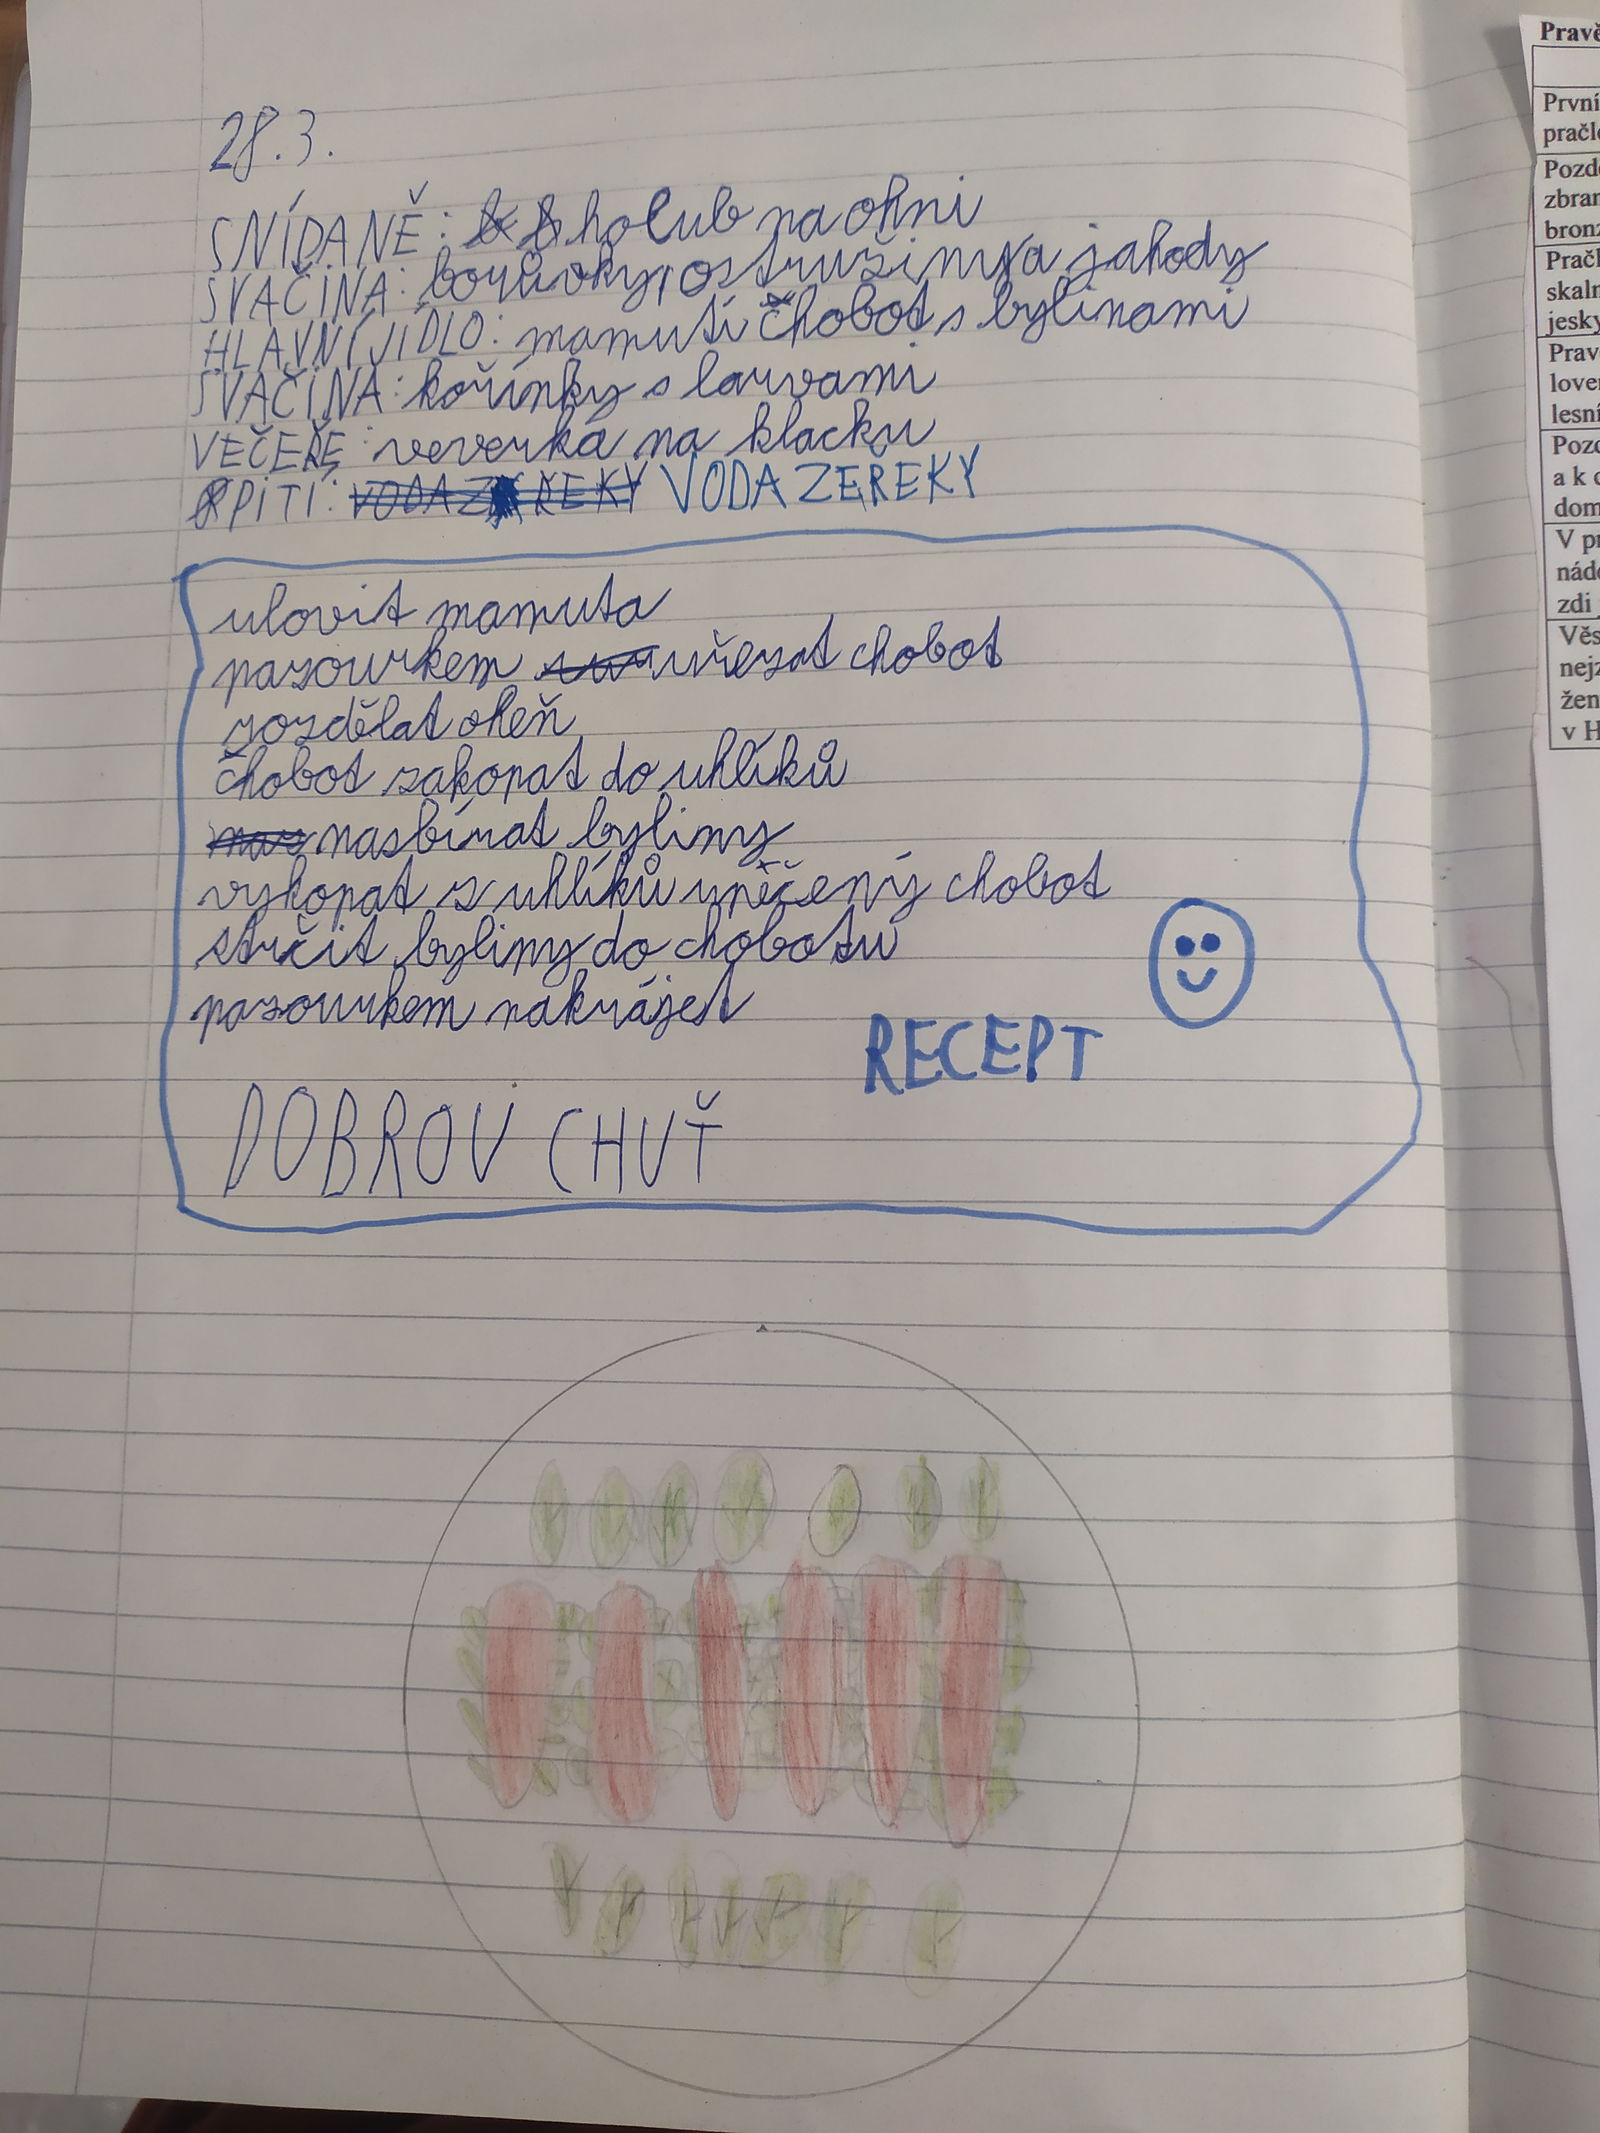 28.3.
SNÍDANĚ: holub na ohni
SVAČINA: borůvky, ostružiny a jahody
HLAVNÍ JÍDLO: mamutí chobot s bylinami
SVAČINA: kořínky s larvami
VEČEŘE: veverka na klacku
PITÍ: VODA Z ŘEKY VODA ZE ŘEKY
ulovit mamuta
pazourkem uřezat chobot
rozdělat oheň
chobot zakopat do uhlíků
nasbírat byliny
vykopat z uhlíků upěčený chobot
strčit byliny do chobotu
pazourkem nakrájet
RECEPT
DOBROU CHUŤ
Pravě
První
pračl
Pozd
zbran
bronz
Pračl
skaln
jesky
Prav
love
lesní
Pozd
a k
dom
V p
nád
zdi
Věs
nejz
žen
v H